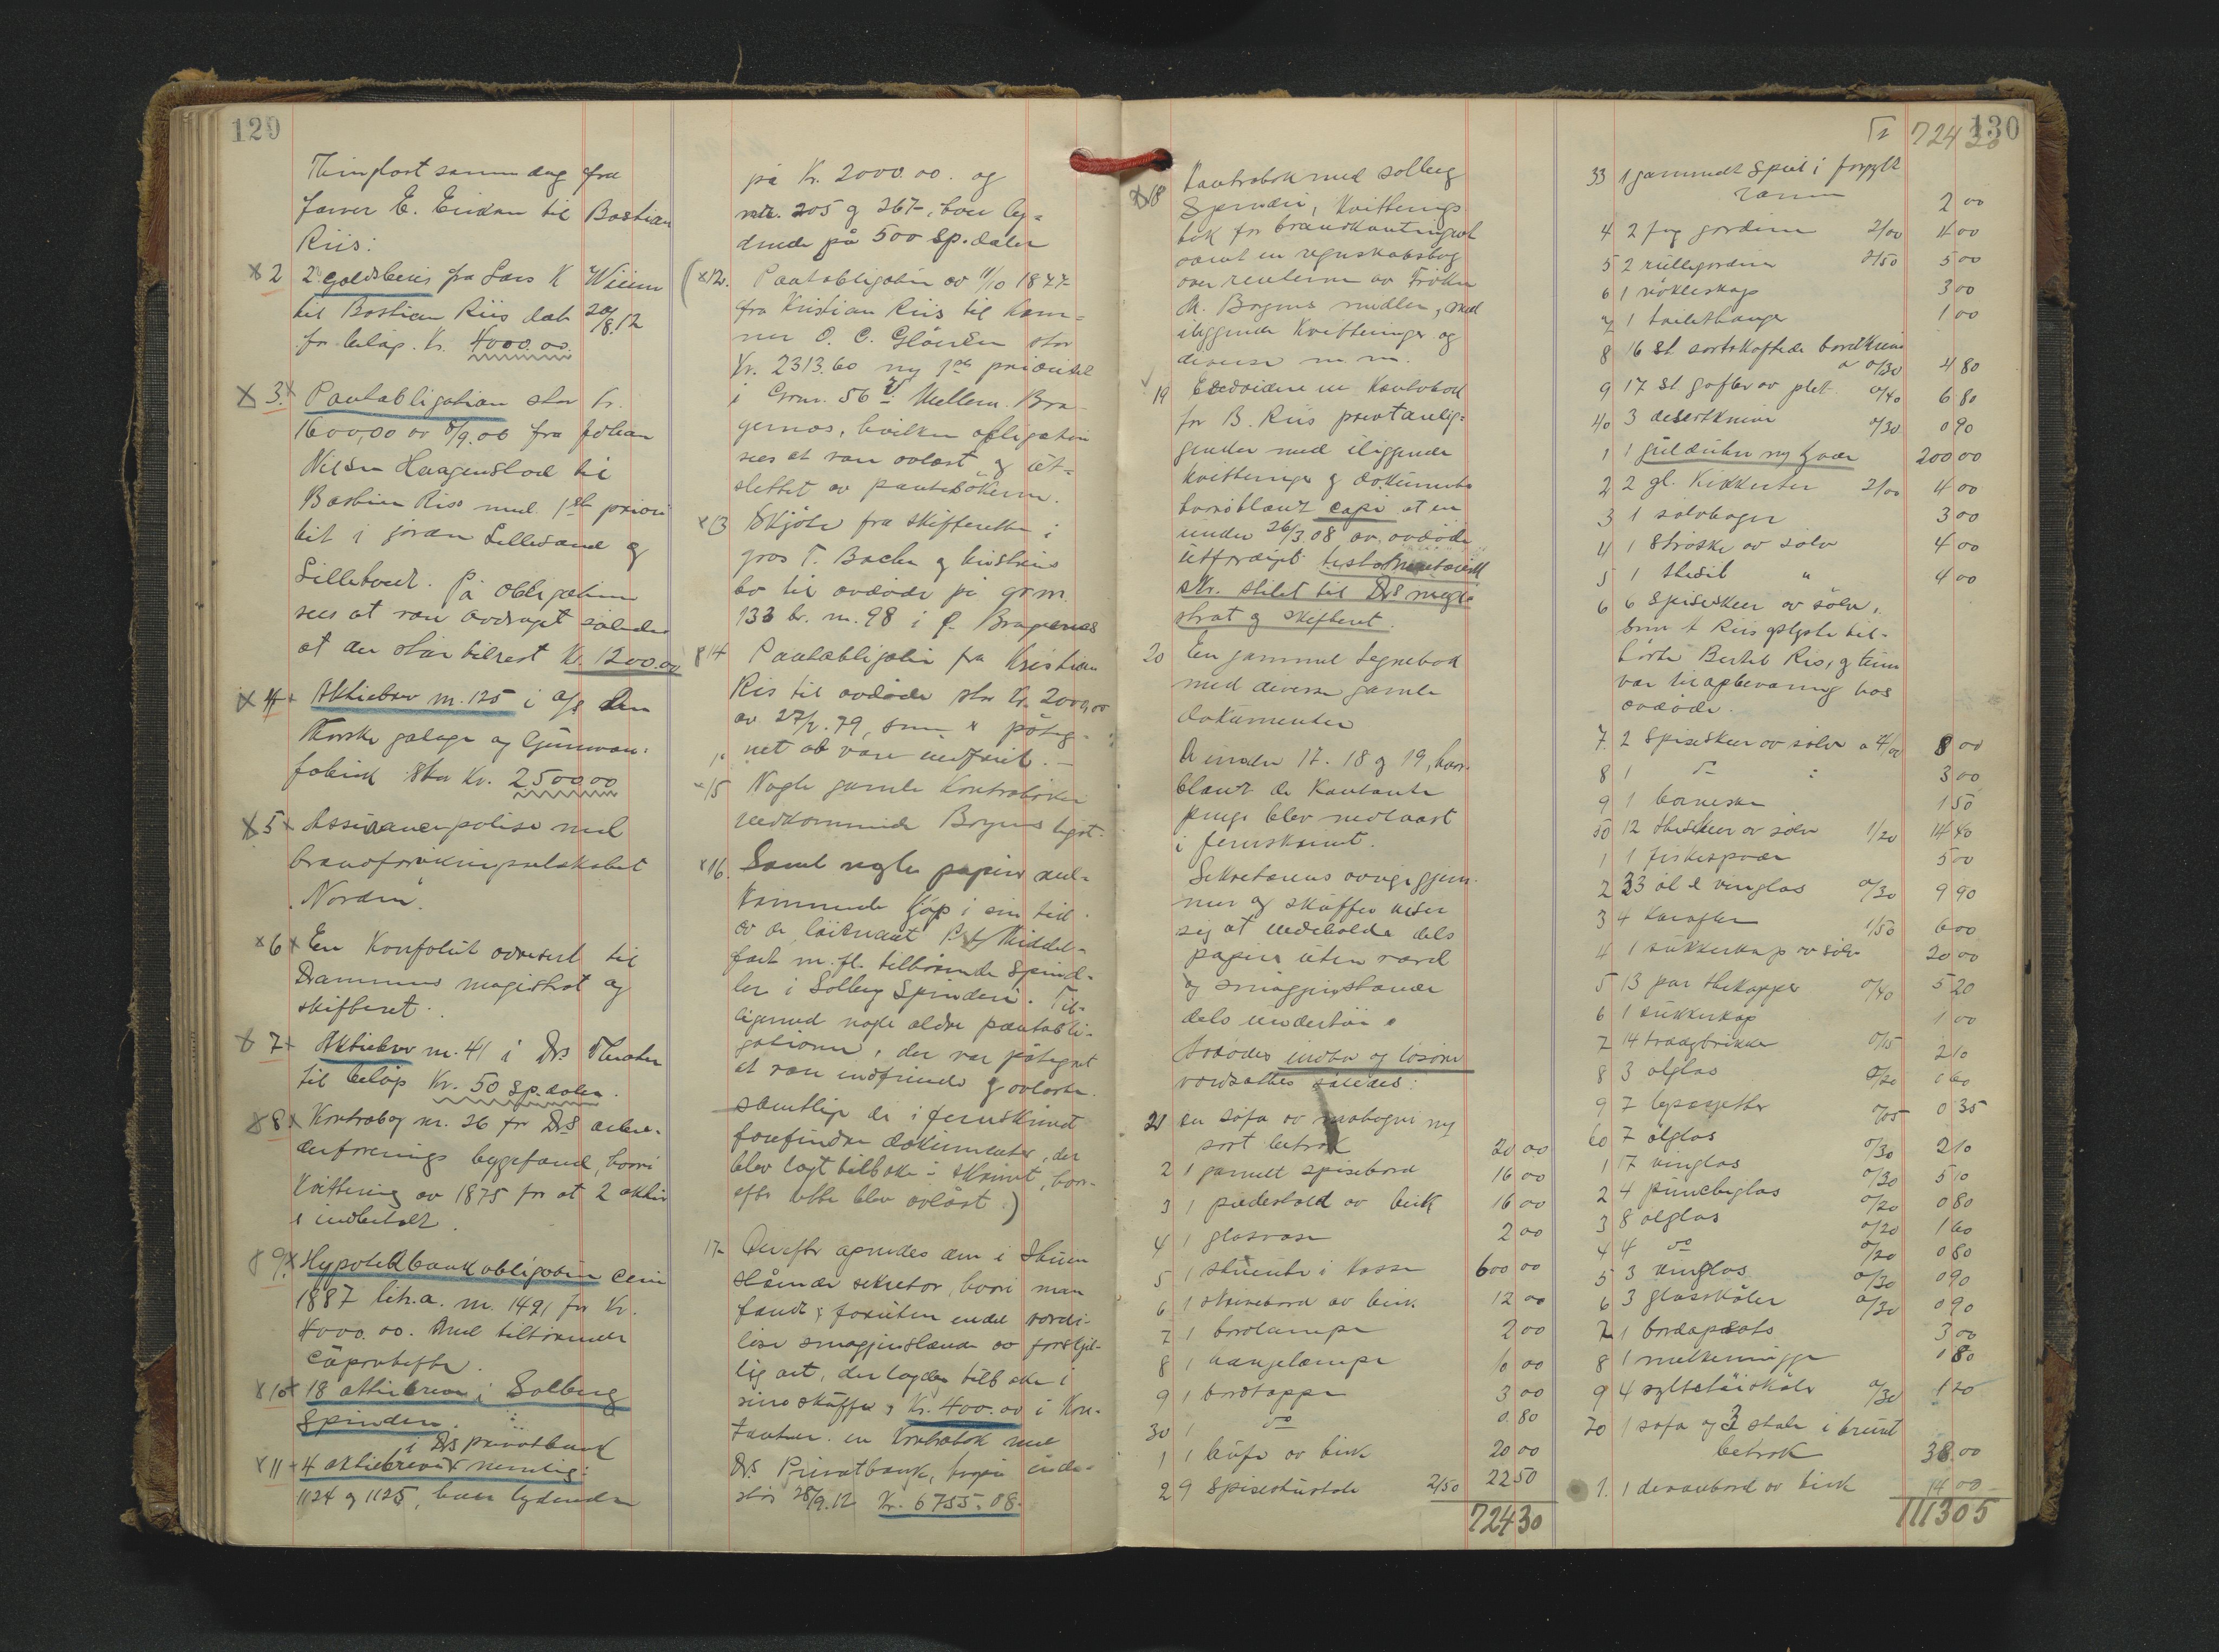 129
Thinglæst samme dag fra
farver E. Eriksen til Bastian
Riis:
x 2 2 goldsbevis fra Lars K
til Bastian Riis dat 20/8.12
for beløp Kr. 4000.00.
x 3.x Pantobligation stor Kr.
1600,00 av 8/9.06 fra Johan
Nilsen Haagenstad til
Bastian Riis med 1ste priori
tet i jorden Lillesand og
Lilletvedt. På obligationen
sees at være avdraget således
at der står tilrest Kr. 1200.00
x 4 x Aktiebrev nr. 125 i a/s Den
Norske galoge og Gummivare-
fabrik stor Kr. 2500.00
x 5 x Assurancepolise med
brandforsikringsselskabet
"Norden".
x 6 x En Konvolut adressert til
Drammens magistrat og
skifteret.
x 7 x Aktiebrev nr. 41 i Drs Theater
til beløp Kr. 50 sp.daler.
x 8 x Kontrabog nr. 26 for Drs arbei-
derforenings byggefond, hvori
Kvittering av 1875 for at 2 aktier
er indbetalt.
x 9.x Hypotekbankobligation Serie
1887 litr.a. nr. 1491 for Kr.
4000.00. Med tilhørende
Cuponhefte.
x 10 x 18 aktiebreve i Solberg
Spinderi.
i Drs privatbank
x 11 x 4 aktiebreve nemlig:
1124 og 1125, hver lydende
på Kr. 2000.00. og
nr. 205 og 267, hver ly-
dende på 500 Sp.daler
(x12. Pantobligation av 11/10 1877
fra Kristian Riis til Kam-
mer O. C. stor
Kr. 2313.60 my 1ste prioritet
i Grm. 56 Mellem Bra-
gernæs, hvilken obligation
sees at være avlæst og ut-
slettet av pantebøkerne.
x13 Skjøte fra Skifteretten i
gros T. Bache og hustrus
bo til avdøde på grm.
133 br. nr. 98 i Bragernæs
x 14 Pantobligation fra Kristian
Riis til avdøde stor Kr. 2000,00
av 27/2.79, som er påteg-
net at være indfriet.
x 15 Nogle gamle Kontrabøker
vedkommende Boyns
x16. Samt nogle papirer ved-
kommende Kjøp i sin tid
av løitnant Middel-
fart m.fl. tilhørende Spind-
ler i Solberg Spinderi. Til-
ligemed nogle ældre pantobli-
gationer, der var påtegnet
at være indfriede og avlæste.
Samtlige de i jernskrinet
forefundne dokumenter, der
blev lagt tilbake i skrinet, hvor-
efter dette blev avlåst.)
17- Derefter åpnedes den i Stuen
stående sekretær, hvori man
fandt foruten endel værdi-
løse smågjenstande av forskjel-
lig art, der lagdes tilbake i
sine skuffer, Kr. 400.00 i Kon-
tanter. en Kontrabok med
Drs. Privatbank, hvorpå inde-
står 28/9.12 Kr. 6755.08.
x18 Kontrabok med Solberg
Spinderi, Kvitterings
bok for brandkontingent
samt en regnskabsbog
over renterne av Frøken
M. Boyns midler, med
iliggende Kvitteringer og
diverse m.m.
19 Endvidere en Kontrabok
for B. Riis
med iliggende
Kvitteringer og dokumenter
hvoriblant copi at en
under 26/3.08 av avdøde
utfærdiget testamentarisk
Skr. stilet til Drs magi
strat og Skifteret.
20 En gammel tegnebok
med diverse gamle
dokumenter
Numrene 17. 18 og 19, hvor-
blant de Kontante
penge blev nedlaast
i jernskrinet.
Sekretærens øvrige gjem-
mer og skuffer viser
sig at indeholde dels
papirer uten værd
og smågjenstande
dels undertøi.
Avdødes indbo og løsøre
værdsattes således:
21 en sofa av mahogni my
sort betræk 20 00
2 1 gammelt spisebord 16 00
3 1 piedestal av birk 16 00
4 1 glasvase 2 00
5 1 stueuhr i Kasse 600 00
6 1 skrivebord av birk 12 00
7 1 bordlampe 2 00
8 1 hængelampe 10 00
9 1 bordtæppe 3 00
30 1 do 0.80
1 1 buffet av birk 20 00
2 9 Spisestuestole 2/50 22 50
724 30
130
724 30
33 1 gammelt Speil i forgylt
ramme 2 00
4 2 fag gardiner 2/00 4 00
5 2 rullegardiner 2/50 5 00
6 1 nøkleskap 3 00
7 1 1 00
8 16 st sortskaftede bordkniver
a 0/30 4 80
9 17 st gafler av plet 0/40 6 80
40 3 desertkniver 0/30 0 90
1 1 gulduhr my kjede 200 00
2 2 gl. Kikkerter 2/00 4 00
3 1 sølvbæger 3 00
4 1 Strøske av sølv 4 00
5 1 thesil " 4 00
6 6 spiseskeer av sølv,
som Riis oplyste til-
hørte Bertel Riis, og kun
var til opbevaring hos
avdøde.
7. 2 Spiseskeer av sølv a 4/00 8 00
8 1 do : 3 00
9 1 barneske 1 50
50 12 theskeer av sølv 1/20 14 40
1 1 fiskespade 5 00
2 33 øl & vinglas 0/30 9 90
3 4 Karafler 1/50 6 00
4 1 sukkerkop av sølv 20 00
5 13 par thekopper 0/40 5 20
6 1 sukkerkop 1 00
7 14 0/15 2 10
8 3 ølglas 0/20 0 60
9 7 0/05 0 35
60 7 ølglas 0/30 2 10
1 17 vinglas 0/30 5 10
2 4 puncheglas 0/20 0 80
3 8 ølglas 0/20 1 60
4 4 do 0/20 0 80
5 3 vinglas 0/30 0 90
6 3 glasskåler 0/30 0 90
7 1 bordopsats 3 00
8 1 melkemugge 1 80
9 4 syltetøiskåle 0/30 1 20
70 1 sofa og 3 stole i brunt
betræk 38.00
1. 1 divanbord av birk 14 00
1113 05